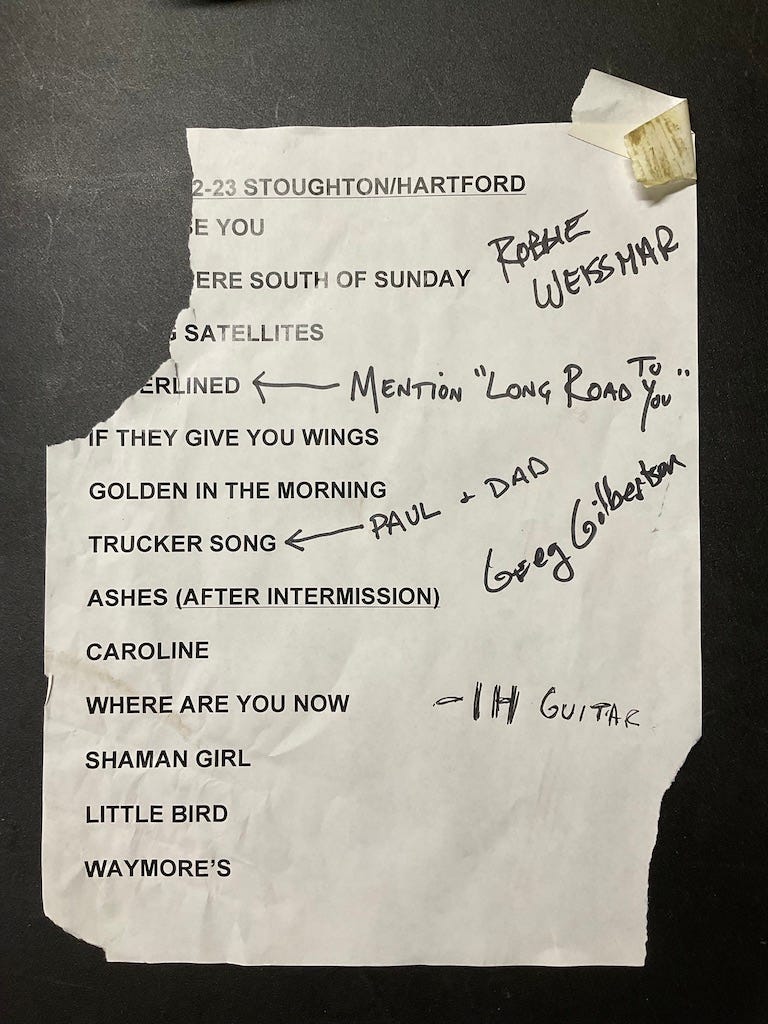 2-23 STOUGHTON/HARTFORD
E YOU
ERE SOUTH OF SUNDAY
ROBBIE
WEISSMAR
SATELLITES
ERLINED ← MENTION "LONG ROAD TO YOU"
IF THEY GIVE YOU WINGS
GOLDEN IN THE MORNING
TRUCKER SONG ← PAUL + DAD
Greg Gilbertson
ASHES (AFTER INTERMISSION)
CAROLINE
WHERE ARE YOU NOW
GUITAR
SHAMAN GIRL
LITTLE BIRD
WAYMORE'S